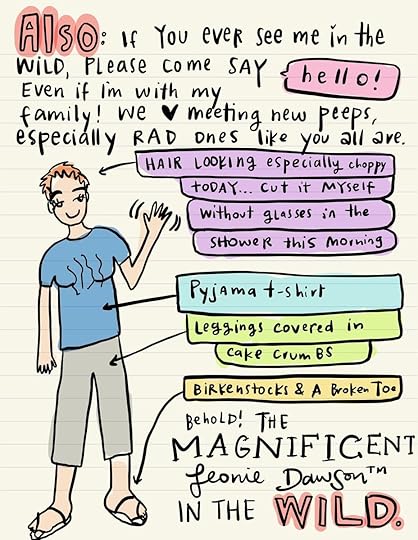 Also: If you ever see me in the
wild, please come say hello!
Even if Im with my
family! We ♥ meeting new peeps,
especially RAD ones like you all are.
HAIR LOOKING especially choppy
today... cut it myself
without glasses in the
shower this morning
Pyjama t-shirt
Leggings covered in
cake crumbs
Birkenstocks & A Broken Toe
Behold! The
MAGNIFICENT
Leonie Dawson™
IN THE WILD.